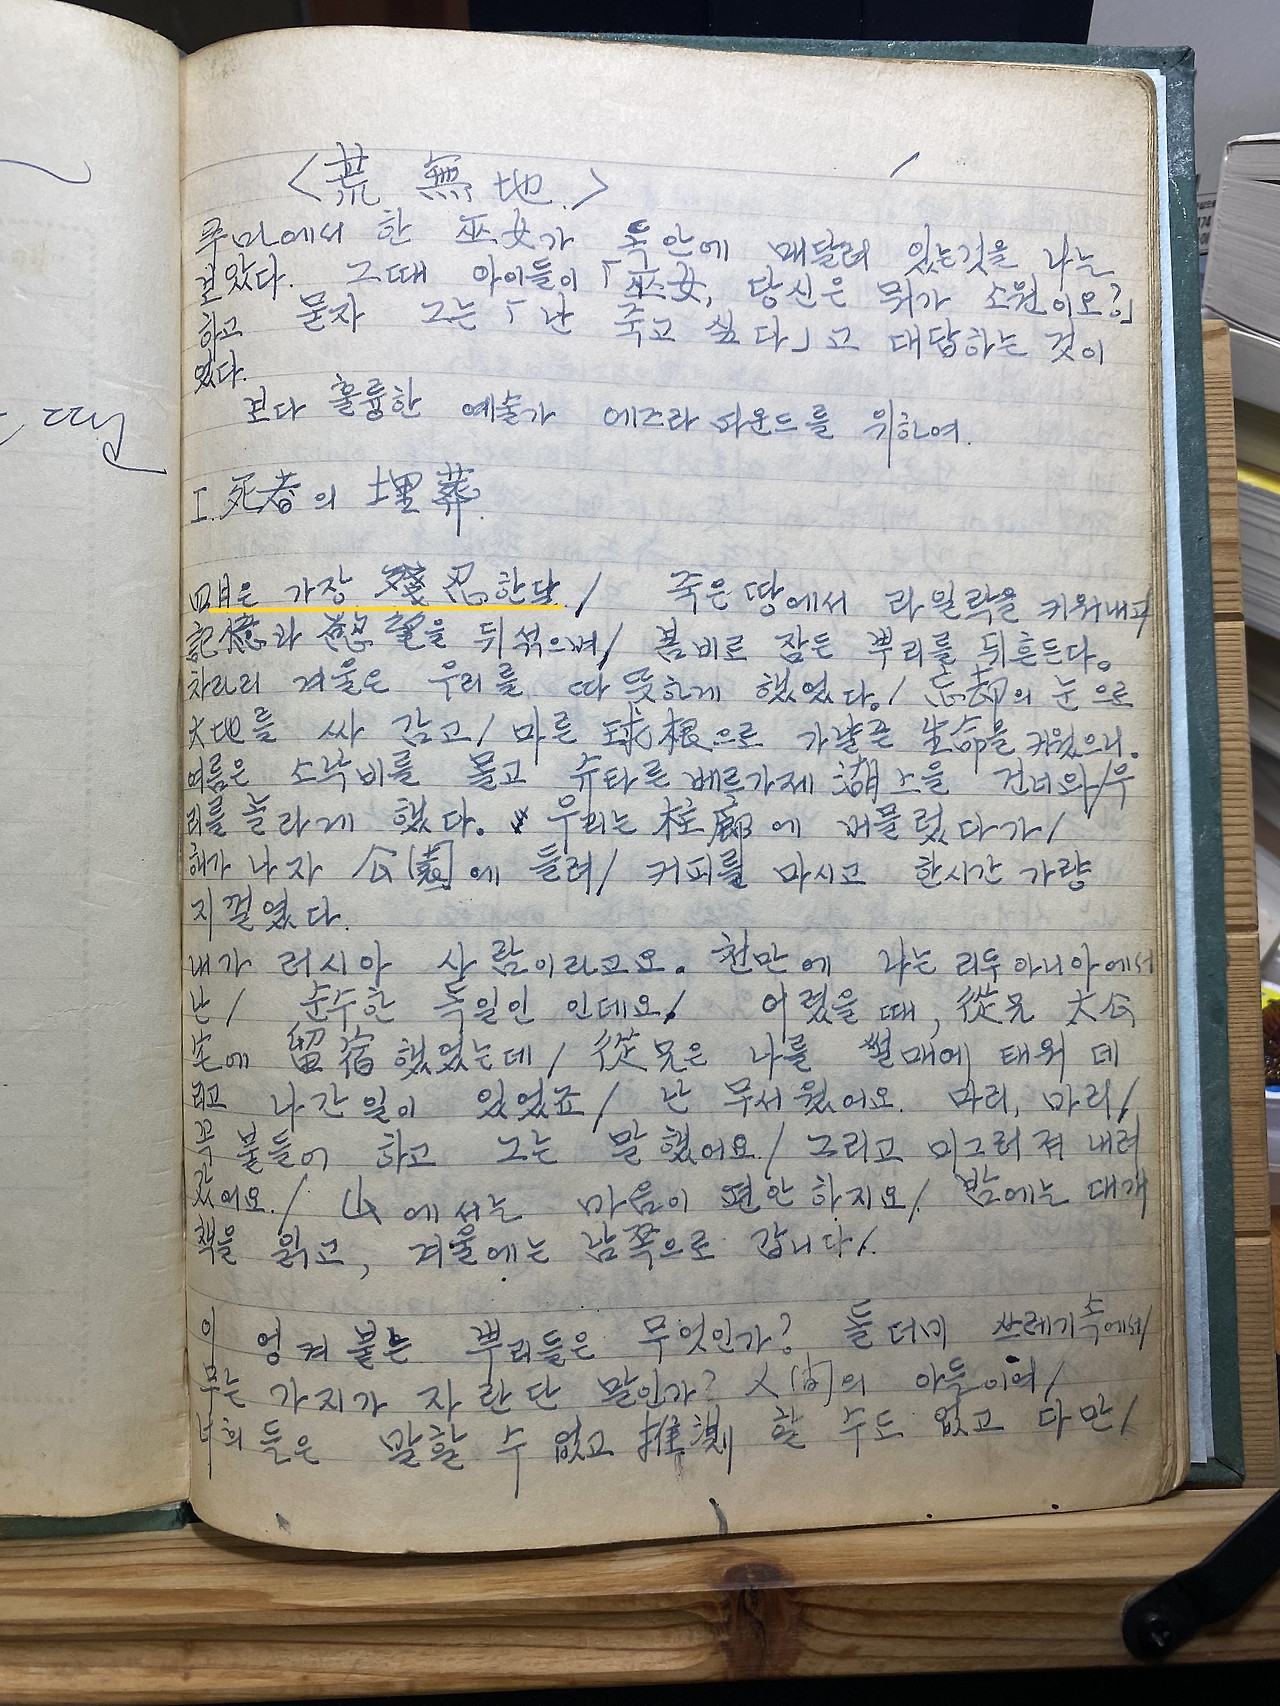 〈荒無地〉
쿠마에서 한 巫女가 독안에 매달려 있는것을 나는
보았다. 그때 아이들이「巫女, 당신은 뭐가 소원이오?」
하고 묻자 그는「난 죽고 싶다」고 대답하는 것이
었다.
보다 훌륭한 예술가 에즈라 파운드를 위하여.
I. 死者의 埋葬.
四月은 가장 殘忍한달. / 죽은 땅에서 라일락을 키워내고
記憶과 慾望을 뒤섞으며/ 봄비로 잠든 뿌리를 뒤흔든다.
차라리 겨울은 우리를 따뜻하게 했었다. / 忘却의 눈으로
大地를 싸 감고/ 마른 球根으로 가냘픈 生命을 키웠으니.
여름은 소낙비를 몰고 슈타른베르가제 湖上을 건너와/우
리를 놀라게 했다. 우리는 柱廊에 머물렀다가/
해가 나자 公園에 들려/ 커피를 마시고 한시간 가량
지껄였다.
내가 러시아 사람이라고요. 천만에 나는 리투아니아에서
난/ 순수한 독일인 인데요/ 어렸을 때, 從兄 大公
宅에 留宿했었는데/ 從兄은 나를 썰매에 태워 데
리고 나간일이 있었죠/ 난 무서웠어요. 마리, 마리/
꼭 붙들어 하고 그는 말했어요./ 그리고 미그러져 내려
갔어요./ 山에서는 마음이 편안하지요/ 밤에는 대개
책을 읽고, 겨울에는 남쪽으로 갑니다/.
이 엉켜 붙는 뿌리들은 무엇인가? 돌더미 쓰레기속에서/
무슨 가지가 자란단 말인가? 人間의 아들이여/
너희들은 말할 수 없고 推測할 수도 없고 다만/